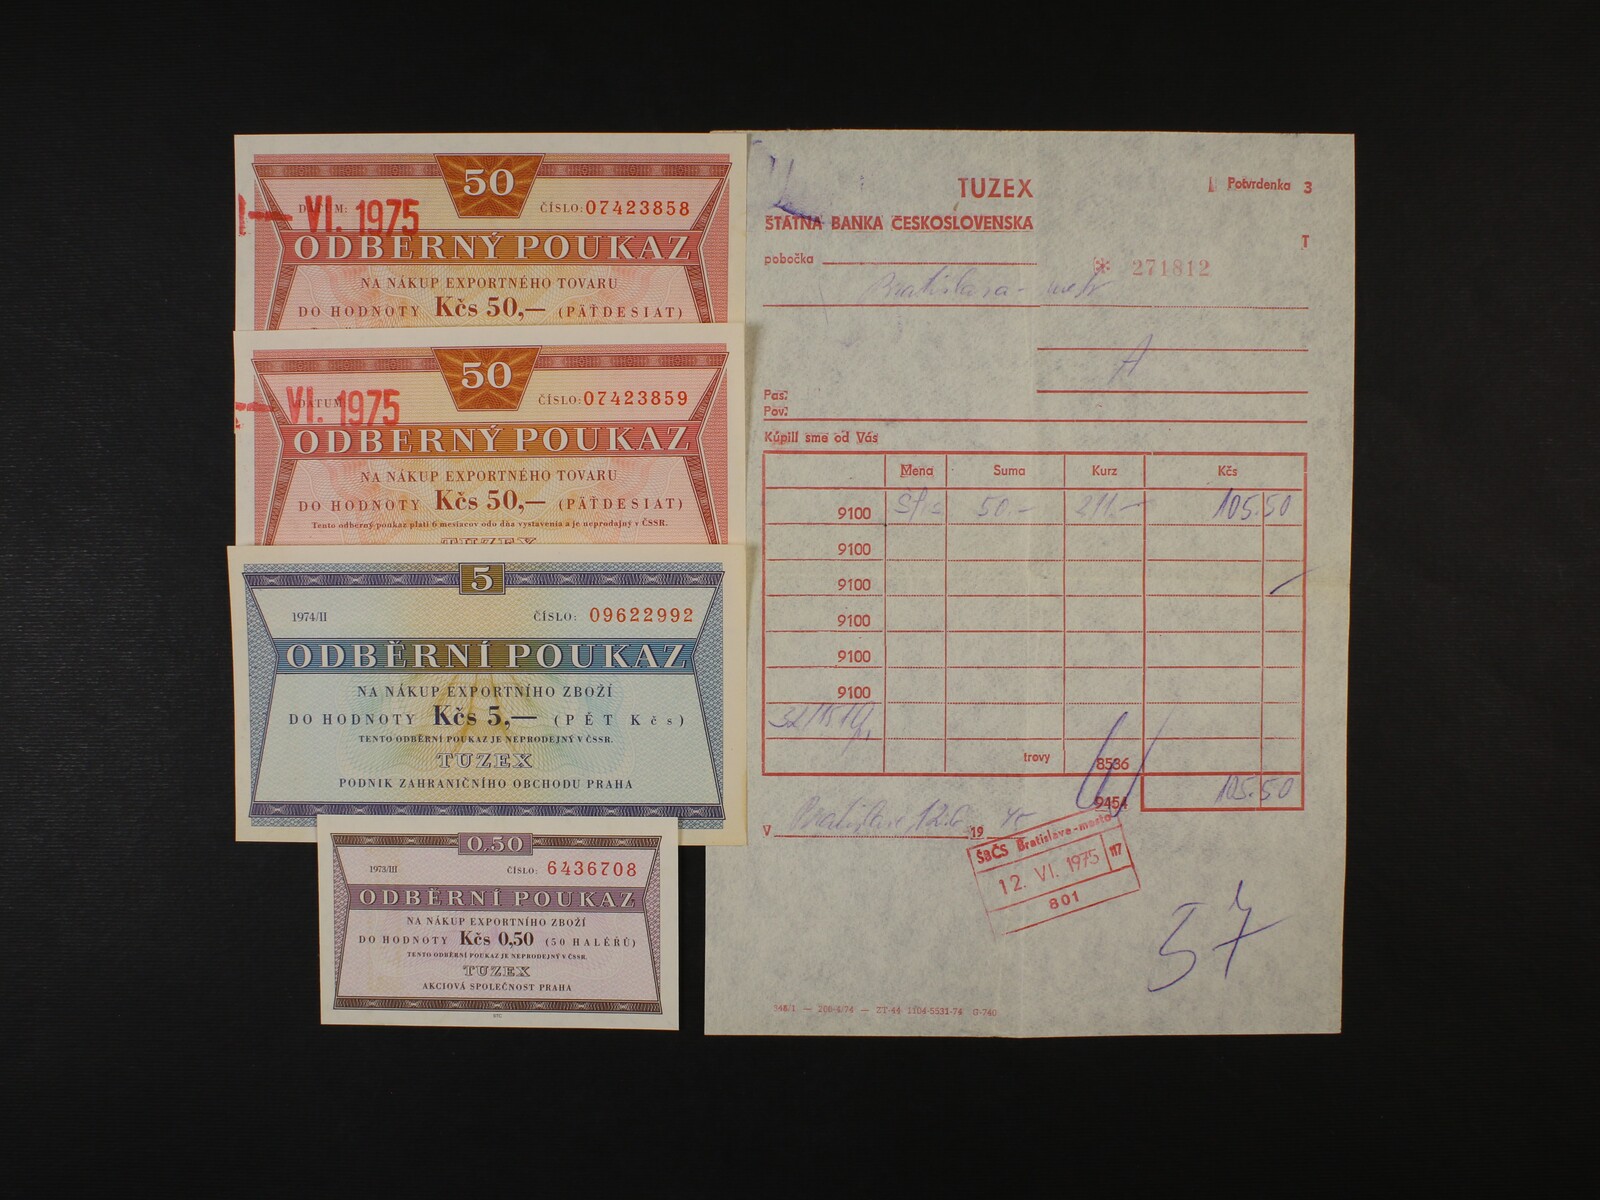 50
DATUM:
VI. 1975
ČÍSLO: 07423858
ODBERNÝ POUKAZ
NA NÁKUP EXPORTNÉHO TOVARU
DO HODNOTY Kčs 50,— (PÄŤDESIAT)
50
DATUM
VI. 1975
ČÍSLO: 07423859
ODBERNÝ POUKAZ
NA NÁKUP EXPORTNÉHO TOVARU
DO HODNOTY Kčs 50,— (PÄŤDESIAT)
Tento odberný poukaz platí 6 mesiacov odo dňa vystavenia a je nepredajný v ČSSR.
TUZEX
5
1974/II
ČÍSLO: 09622992
ODBĚRNÍ POUKAZ
NA NÁKUP EXPORTNÍHO ZBOŽÍ
DO HODNOTY Kčs 5,— (PĚT Kčs)
TENTO ODBĚRNÍ POUKAZ JE NEPRODEJNÝ V ČSSR.
TUZEX
PODNIK ZAHRANIČNÍHO OBCHODU PRAHA
0.50
1973/III
ČÍSLO: 6436708
ODBĚRNÍ POUKAZ
NA NÁKUP EXPORTNÍHO ZBOŽÍ
DO HODNOTY Kčs 0,50 (50 HALÉŘŮ)
TENTO ODBĚRNÍ POUKAZ JE NEPRODEJNÝ V ČSSR.
TUZEX
AKCIOVÁ SPOLEČNOST PRAHA
STC
TUZEX
Potvrdenka 3
ŠTÁTNA BANKA ČESKOSLOVENSKA
T
pobočka
271812
Bratislava -
A
Pas:
Pov:
Kúpili sme od Vás
Mena Suma Kurz Kčs
9100 50.- 211.- 105.50
9100
9100
9100
9100
9100
trovy 8536
9454 105.50
V Bratislave 12.6 19
ŠBČS Bratislava-mesto
12. VI. 1975 117
801
57
348/1 — 200-4/74 — ZT-44 1104-5531-74 G-740